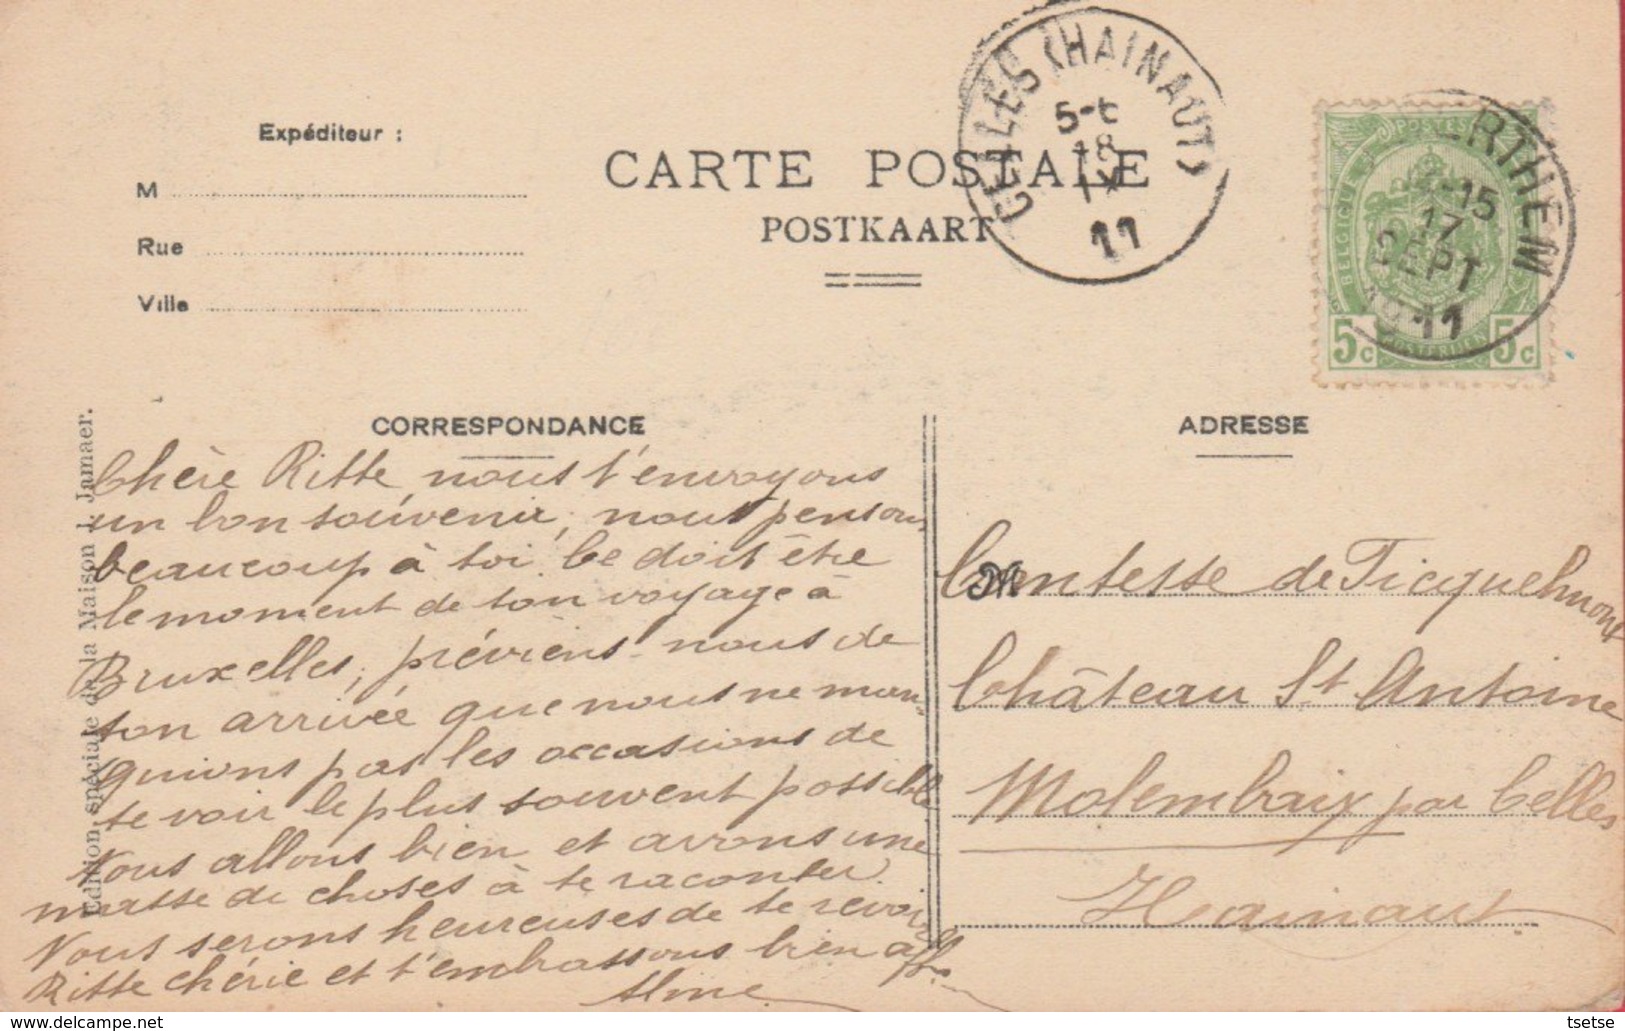 Expéditeur :
M
Rue
Ville
CARTE POSTALE
POSTKAART
CELLES (HAINAUT)
18
11
POSTES
BELGIQUE
ERTHEM
-15
17
SEPT
11
5c 5c
POSTERIJEN
CORRESPONDANCE
ADRESSE
Edition spéciale de la Maison J. Jamaer.
Chère Ritte nous t'envoyons
un bon souvenir, nous pensons
beaucoup à toi. Ce doit être
le moment de ton voyage à
Bruxelles, préviens-nous de
ton arrivée que nous ne man-
quions pas les occasions de
te voir le plus souvent possible
Nous allons bien et avons une
masse de choses à te raconter.
Nous serons heureuses de te revoir
Ritte chérie et t'embrassons bien aff.
Aline
Comtesse de Ticquelmont
Château St. Antoine
Molembaix par Celles
Hainaut
tsetse